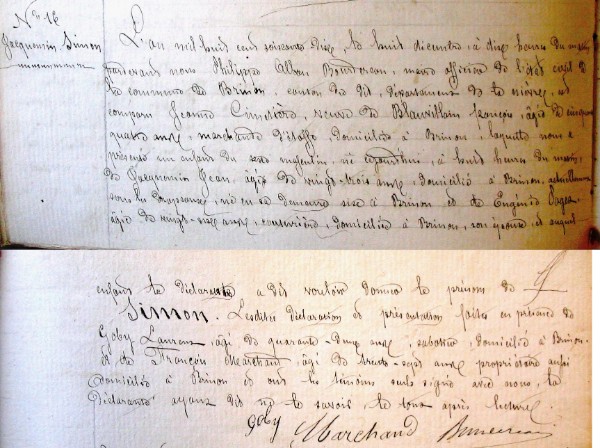 N° 16
Jacquemin Simon
L'an mil huit cent soixante dix, le huit décembre, à dix heures du matin
pardevant nous Philippe Bourdereau, maire officier de l'état civil de
la commune de Brinon, canton du dit, département de la nièvre, est
comparu Jeanne Cimetière, veuve de Blauvillain françois, âgée de cinquante
quatre ans, marchande d'étoffe, domiciliée à Brinon, laquelle nous a
présenté un enfant du sexe masculin, né aujourd'hui, à huit heures du matin,
de Jacquemin Jean, âgé de vingt-trois ans, domicilié à Brinon, actuellement
sous les drapeaux, né en sa demeure sise à Brinon et de Eugénie Pagea
âgée de vingt- ans, couturière, domiciliée à Brinon, son épouse, et auquel
enfant la déclarante a dit vouloir donner le prénom de
Simon. Lesdites déclaration et présentation faites en présence de
Goby Laurent, âgé de quarante- ans, sabotier, domicilié à Brinon
et de François Marchand, âgé de trente-sept ans, propriétaire aussi
domicilié à Brinon et ont les témoins seuls signé avec nous, la
déclarante ayant dit ne le savoir, le tout après lecture.
Goby Marchand